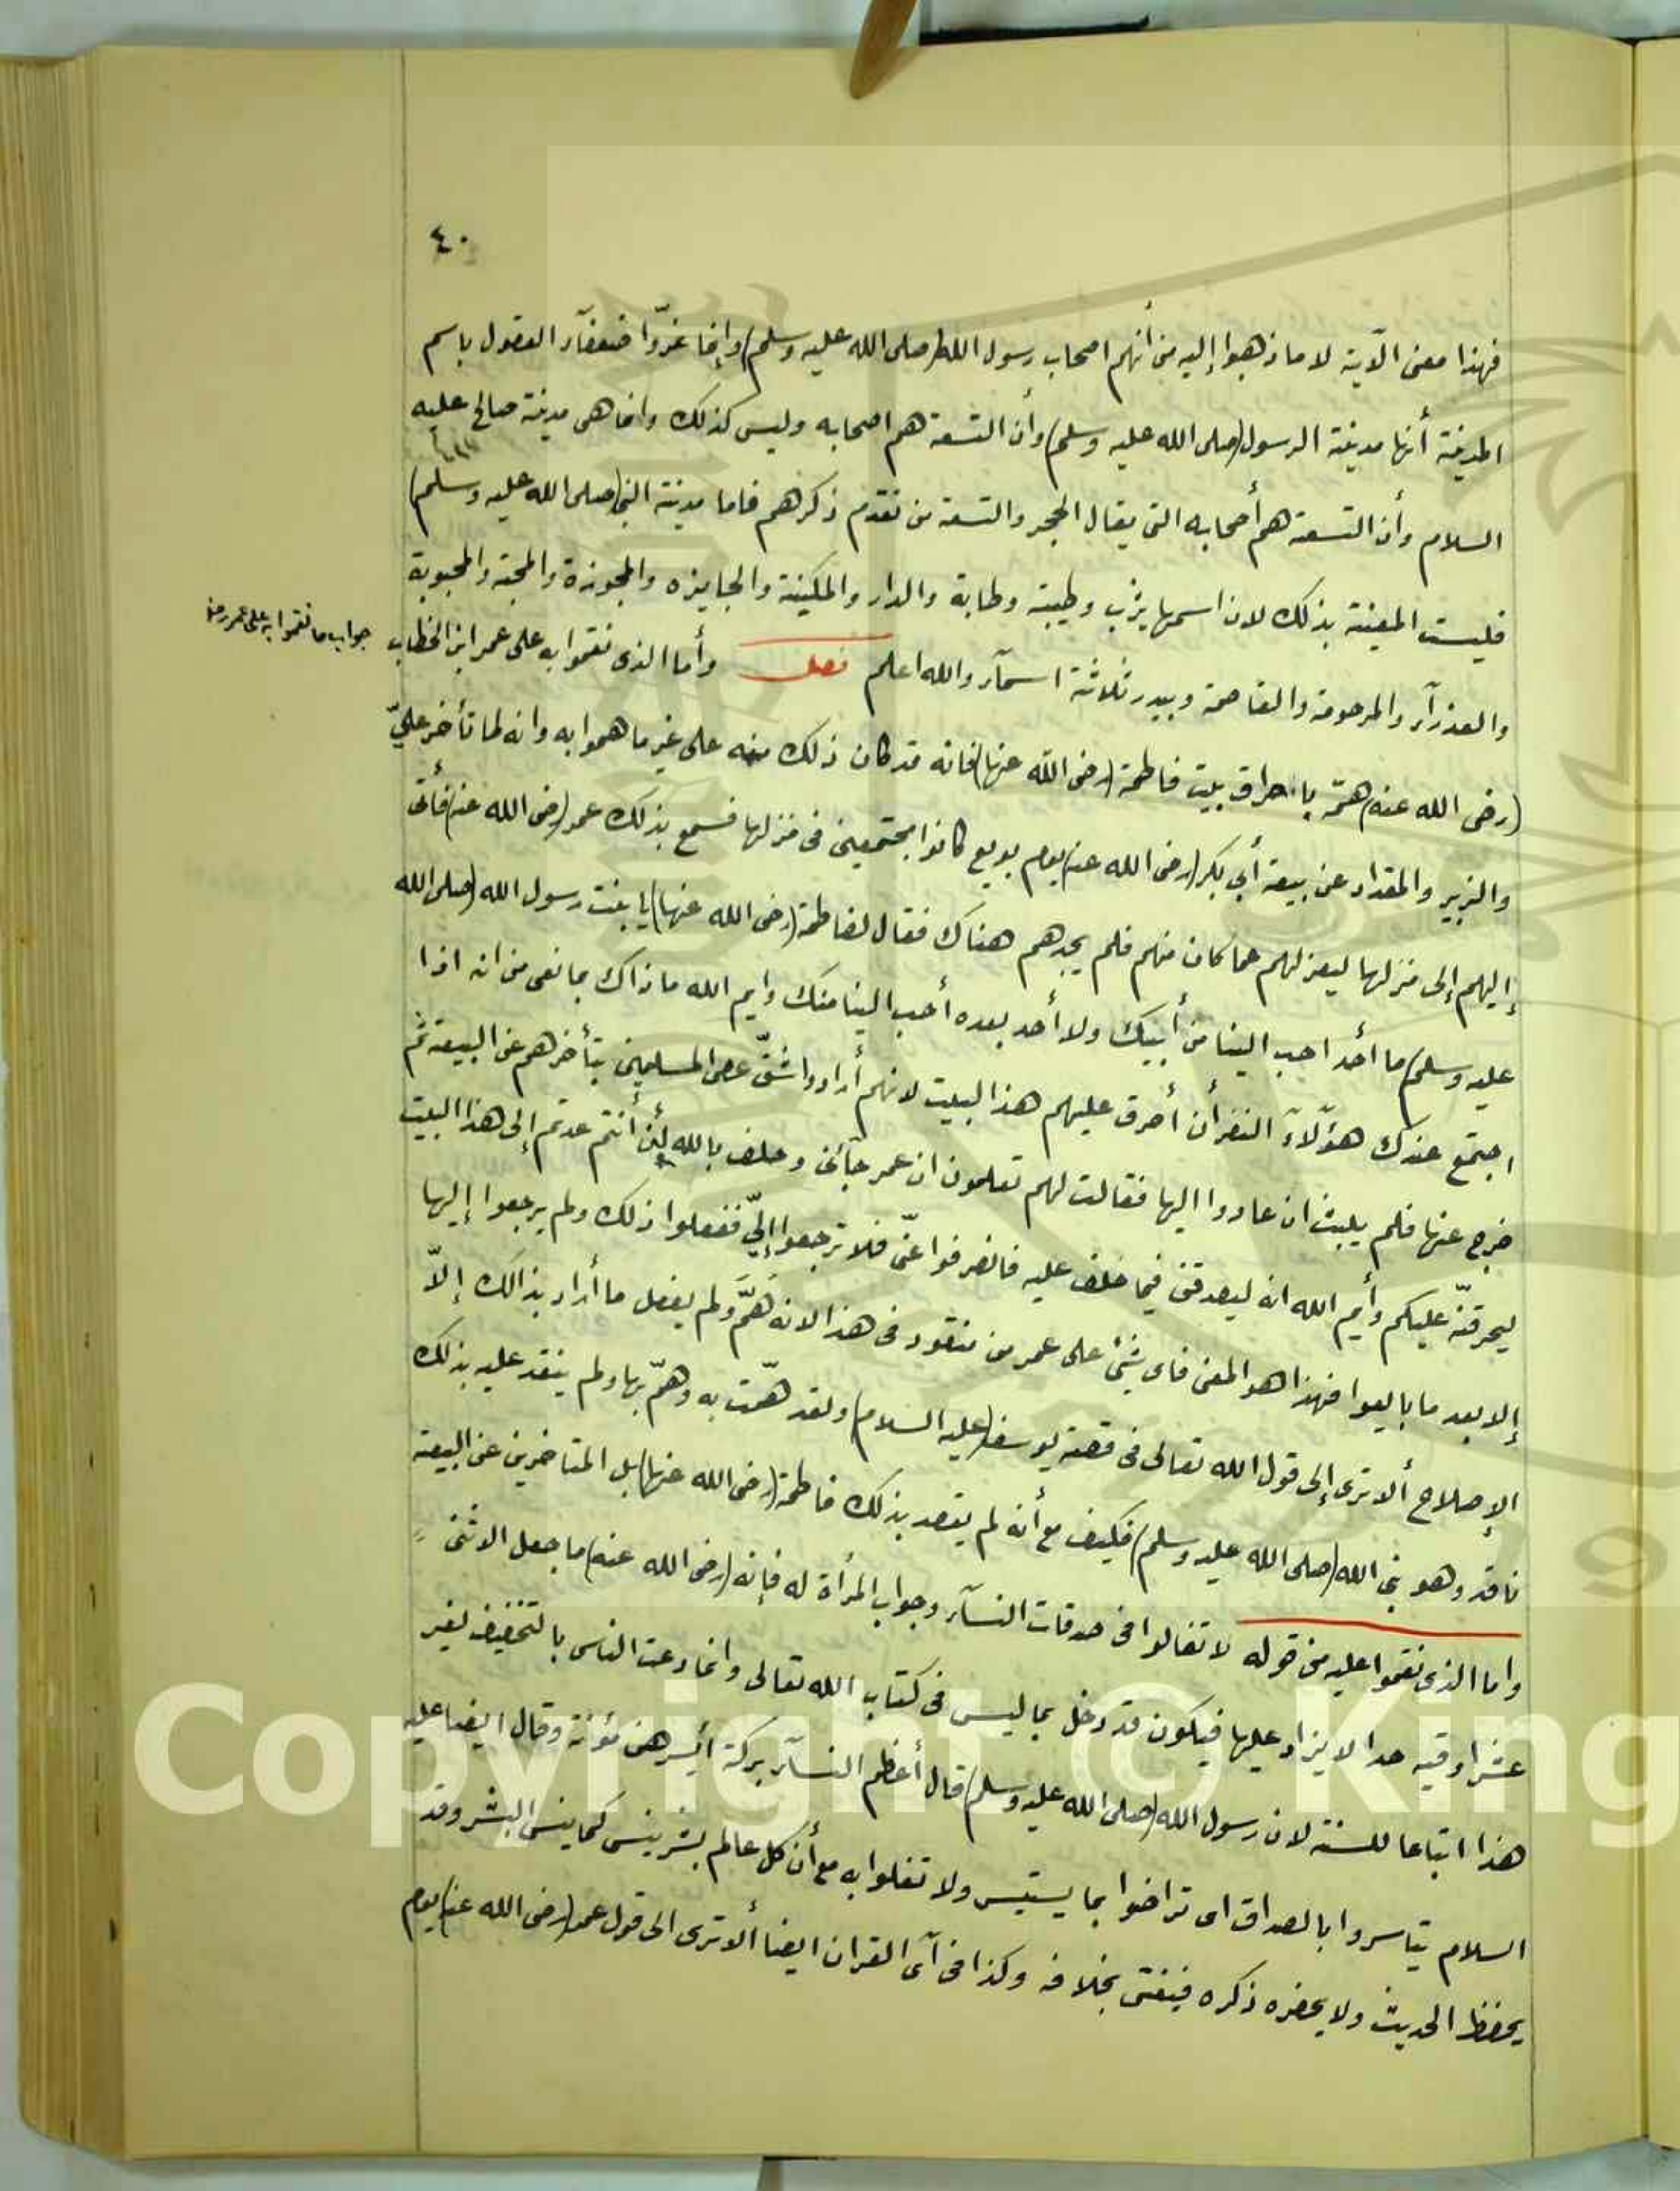 ٤٠
فهذا معنى الآية لا ما ذهبوا إليه من أنهم اصحاب رسول الله (صلى الله عليه وسلم) وإنما غرّوا ضعفآء العقول باسم
المدينة أنها مدينة الرسول (صلى الله عليه وسلم) وأن التسعة هم اصحابه وليس كذلك وانما هى مدينة صالح عليه
السلام وأن التسعة هم أصحابه التى يقال الحجر والتسعة من تقدم ذكرهم فاما مدينة النبى (صلى الله عليه وسلم)
فليست المعينة بذلك لان اسمها يثرب وطيبة وطابة والدار والمكينة والجايزه والمجوزة والمحبة والمحبوبة
والعذرآء والمرحومة والقاصمة ويبدر ثلاثة اسمآء والله اعلم فصل وأما الذى نقموا به على عمر ابن الخطاب
جواب ما نقموا به على عمر رضـ
(رضى الله عنه) همّ باحراق بيت فاطمة (رضى الله عنها) فانه قد كان ذلك منه على غير ما هموا به وانه لما تأخر علىّ
والزبير والمقداد عن بيعة أبي بكر (رضى الله عنه) يوم بويع كانوا مجتمعين فى منزلها فسمع بذلك عمر (رضى الله عنه) فأتى
إليهم إلى منزلها ليعزلهم عما كان منهم فلم يجدهم هناك فقال لفاطمة (رضى الله عنها) يا بنت رسول الله (صلى الله
عليه وسلم) ما أحد احب الينا من أبيك ولا أحد بعده أحب الينا منك وايم الله ما ذاك بما نعى من ان اذا
اجتمع عندك هؤلآء النفر أن أحرق عليهم هذا البيت لانهم أرادوا شقّ عصى المسلمين بتأخرهم عن البيعة ثم
خرج عنها فلم يلبث ان عادوا اليها فقالت لهم تعلمون ان عمر جآئنى وحلف بالله لئن أنتم عدتم إلى هذا البيت
ليحرقنّه عليكم وأيم الله انه ليصدقنّ فيما حلف عليه فانصرفوا عنّى فلا ترجعوا إلىّ ففعلوا ذلك ولم يرجعوا إليها
إلا بعد ما بايعوا فهذا هو المعنى فاى شئ على عمر من منقود فى هذا لانه همّ ولم يفعل ما أراد بذالك إلاّ
الإصلاح ألا ترى إلى قول الله تعالى فى قصة يوسف (عليه السلام) ولقد همّت به وهمّ بها ولم ينقد عليه بذلك
ناقد وهو نبى الله (صلى الله عليه وسلم) فكيف مع أنه لم يقصد بذلك فاطمة (رضى الله عنها) بل المتاخرين عن البيعة
واما الذى نقموا عليه من قوله لا تغالوا فى صدقات النسآء وجواب المرأة له فإنه (رضى الله عنه) ما جعل الاثنى
عشر اوقيه حدا لا يزاد عليها فيكون قد دخل بما ليس فى كتاب الله تعالى وانما دعت الناس بالتخفيف لغير
هذا اتباعا للسنة لان رسول الله (صلى الله عليه وسلم) قال أعظم النسآء بركة أيسرهن مؤنة وقال ايضا عليه
السلام تياسروا بالصداق اى تراضوا بما يستيسر ولا تغلوا به مع أن كل عالم بشر ينسى كما ينسى البشر وقد
يحفظ الحديث ولا يحضره ذكره فيفتى بخلافه وكذا فى آى القران ايضا ألا ترى الى قول عمر (رضى الله عنه) يوم
Copyright © King